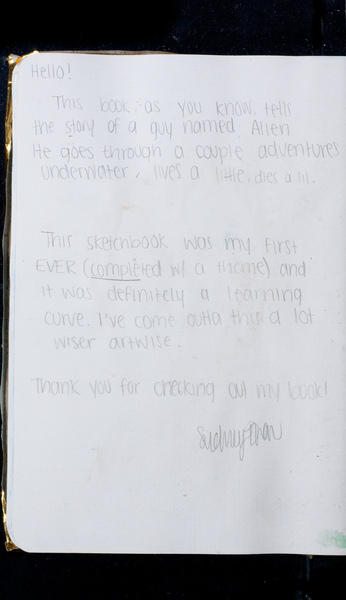 Hello!
This book, as you know, tells
the story of a guy named Allen
He goes through a couple adventures
underwater, lives a little, dies a lil.
This sketchbook was my first
EVER (completed w/ a theme) and
it was definitely a learning
curve. I've come outta this a lot
wiser artwise.
Thank you for checking out my book!